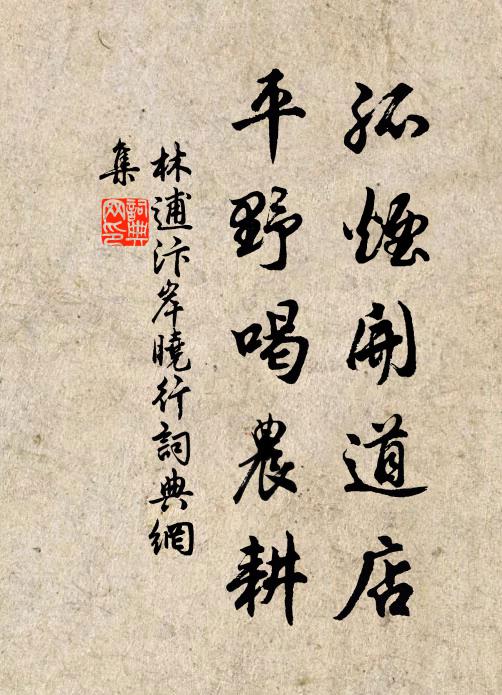 孤煙開道店
平野喝農耕
林逋汴岸曉行詞典網
集
詞典
網印